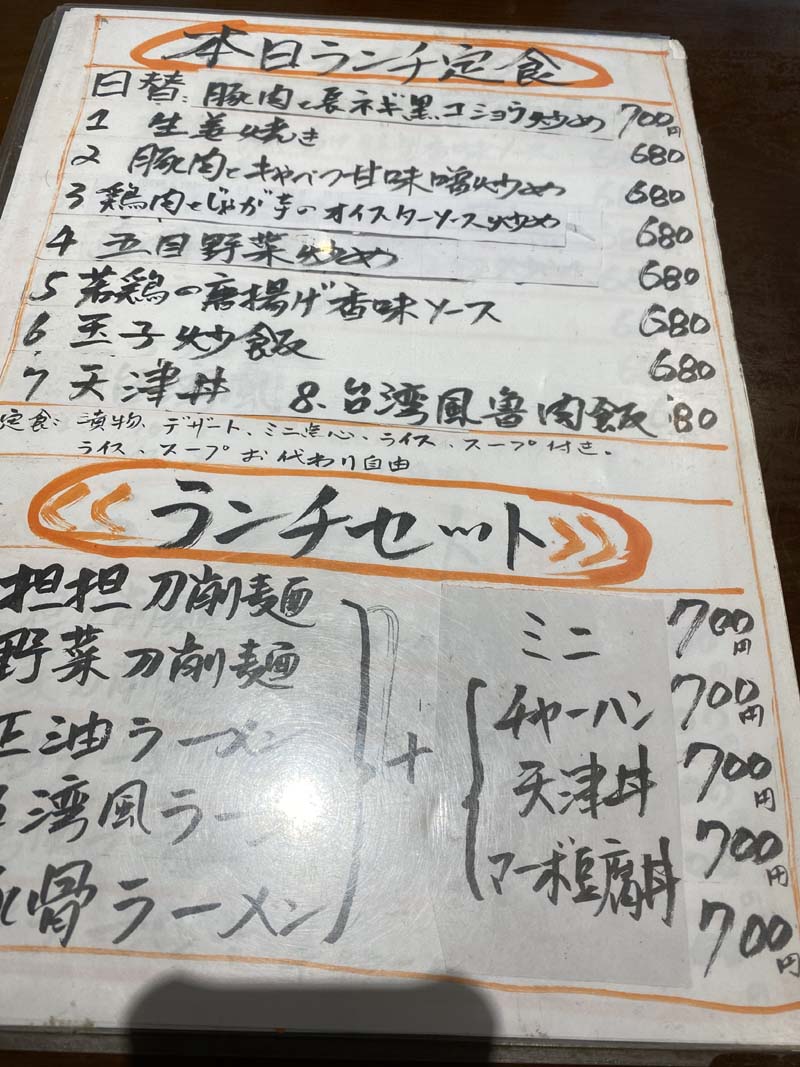 本日ランチ定食
日替:豚肉と長ネギ黒コショウ炒め 700円
1 生姜焼き 680
2 豚肉とキャベツ甘味噌炒め 680
3 鶏肉とじゃが芋のオイスターソース炒め 680
4 五目野菜炒め 680
5 若鶏の唐揚げ香味ソース 680
6 玉子炒飯 680
7 天津丼 8.台湾風魯肉飯 80
定食:漬物、デザート、ミニ点心、ライス、スープ付き。
ライス、スープお代わり自由
《ランチセット》
担担刀削麺 700円
野菜刀削麺 700円
油ラーメン 700円
湾風ラー 700円
骨ラーメン 700円
+
ミニ
チャーハン
天津丼
マーボ豆腐丼